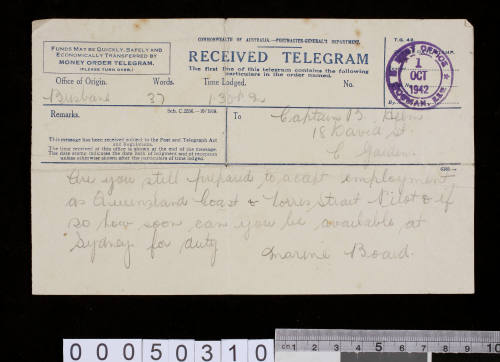 COMMONWEALTH OF AUSTRALIA.—POSTMASTER-GENERAL'S DEPARTMENT.
T.G. 42
FUNDS MAY BE QUICKLY, SAFELY AND
ECONOMICALLY TRANSFERRED BY
MONEY ORDER TELEGRAM.
(PLEASE TURN OVER.)
RECEIVED TELEGRAM
The first line of this telegram contains the following
particulars in the order named.
Office of Origin. Words. Time Lodged. No.
Brisbane 37 1.30 P
POST OFFICE
1
OCT
1942
MOSMAN, N.S.W.
Remarks.
This message has been received subject to the Post and Telegraph Act
and Regulations.
The time received at this office is shown at the end of the message.
The date stamp indicates the date both of lodgment and of transmission
unless otherwise shown after the particulars of time lodged.
To
Captain B.
18 David St
C Gardens
Are you still prepared to acept employment
as Queensland Coast & Torres Strait Pilot & if
so how soon can you be available at
Sydney for duty
Marine Board.
00050310
cm 1 2 3 4 5 6 7 8 9 10